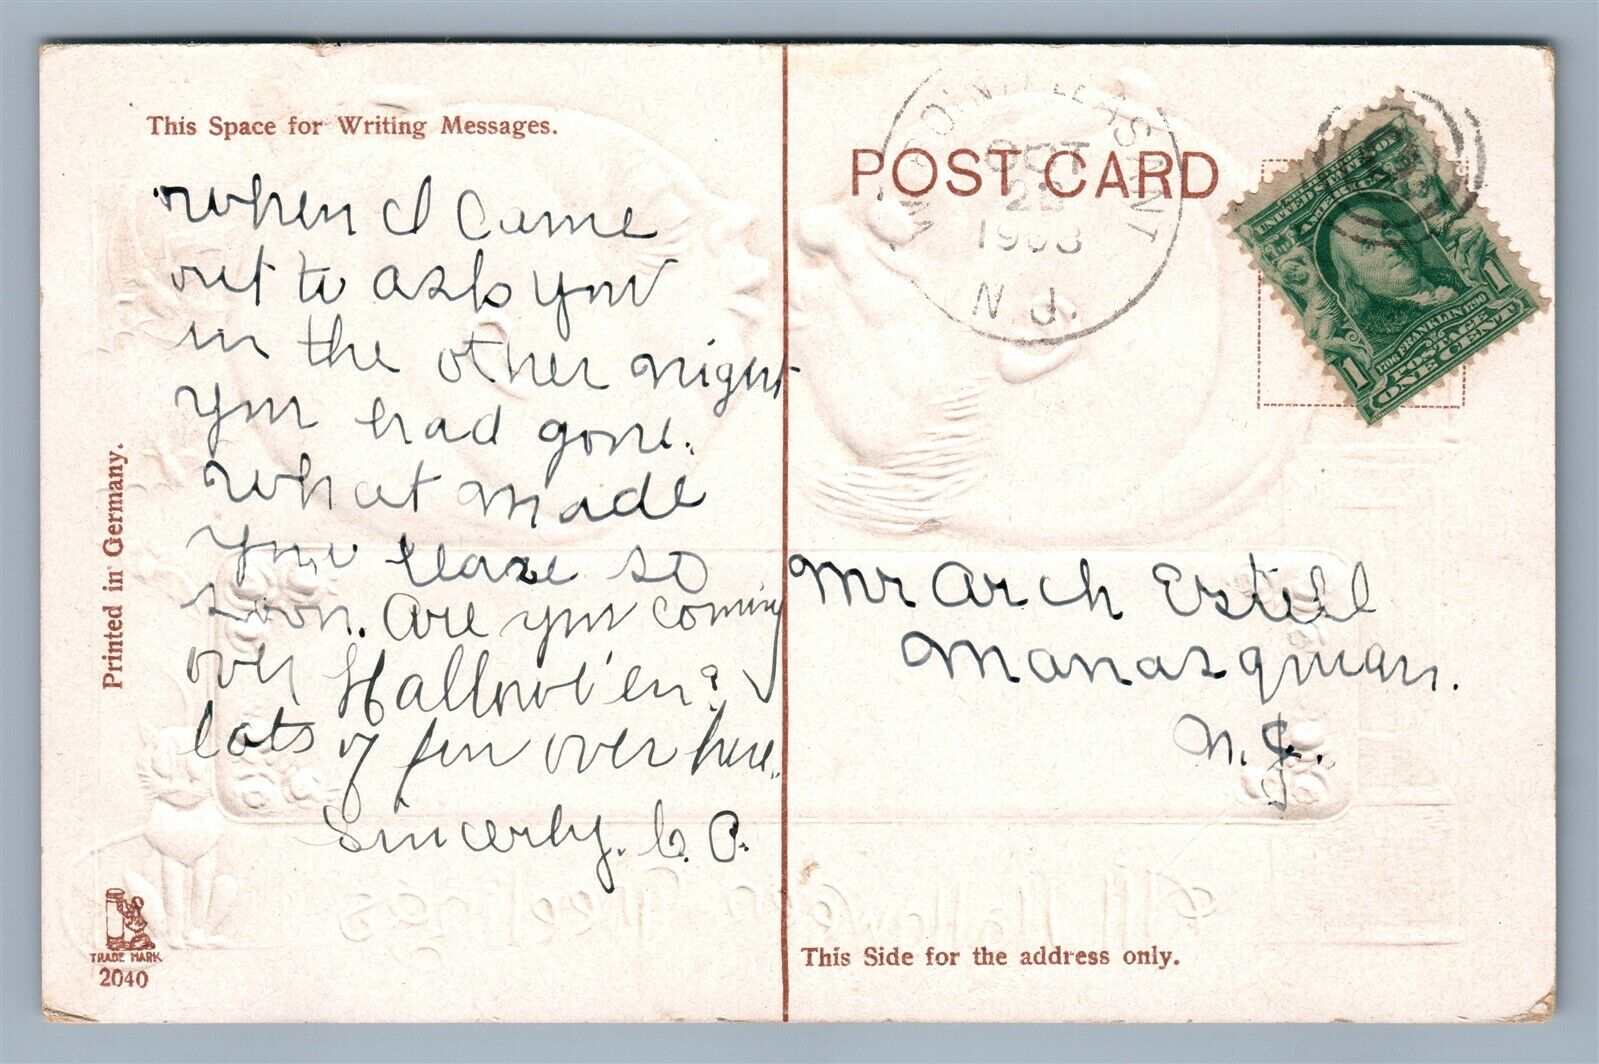 This Space for Writing Messages.
When I came
out to ask you
in the other night
you had gone.
What made
you leave so
soon. Are you coming
over Hallowe'en?
lots of fun over here.
Sincerly. C. P.
Printed in Germany.
TRADE MARK
2040
POST CARD
POINT PLEASANT
OCT
1908
N.J.
UNITED STATES OF
AMERICA
1706 FRANKLIN 1790
POSTAGE
ONE CENT
1
1
Mr Arch Estell
Manasquan.
N.J.
This Side for the address only.
All Hallowe'en Greetings